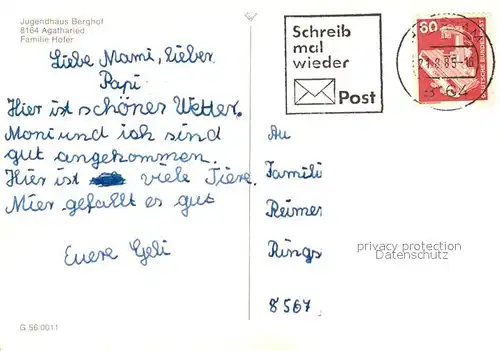 Jugendhaus Berghof
8164 Agatharied
Familie Hofer
Liebe Mami, lieber
Papi
Hier ist schönes Wetter.
Moni und ich sind
gut angekommen.
Hier ist viele Tiere.
Mier gefällt es gut
Euere Geli
G 56 0011
Schreib
mal
wieder
Post
60
DEUTSCHE BUNDESPOST
21.8.85-16
8164
An
Famili
Reimer
Rings
8567
privacy protection
Datenschutz